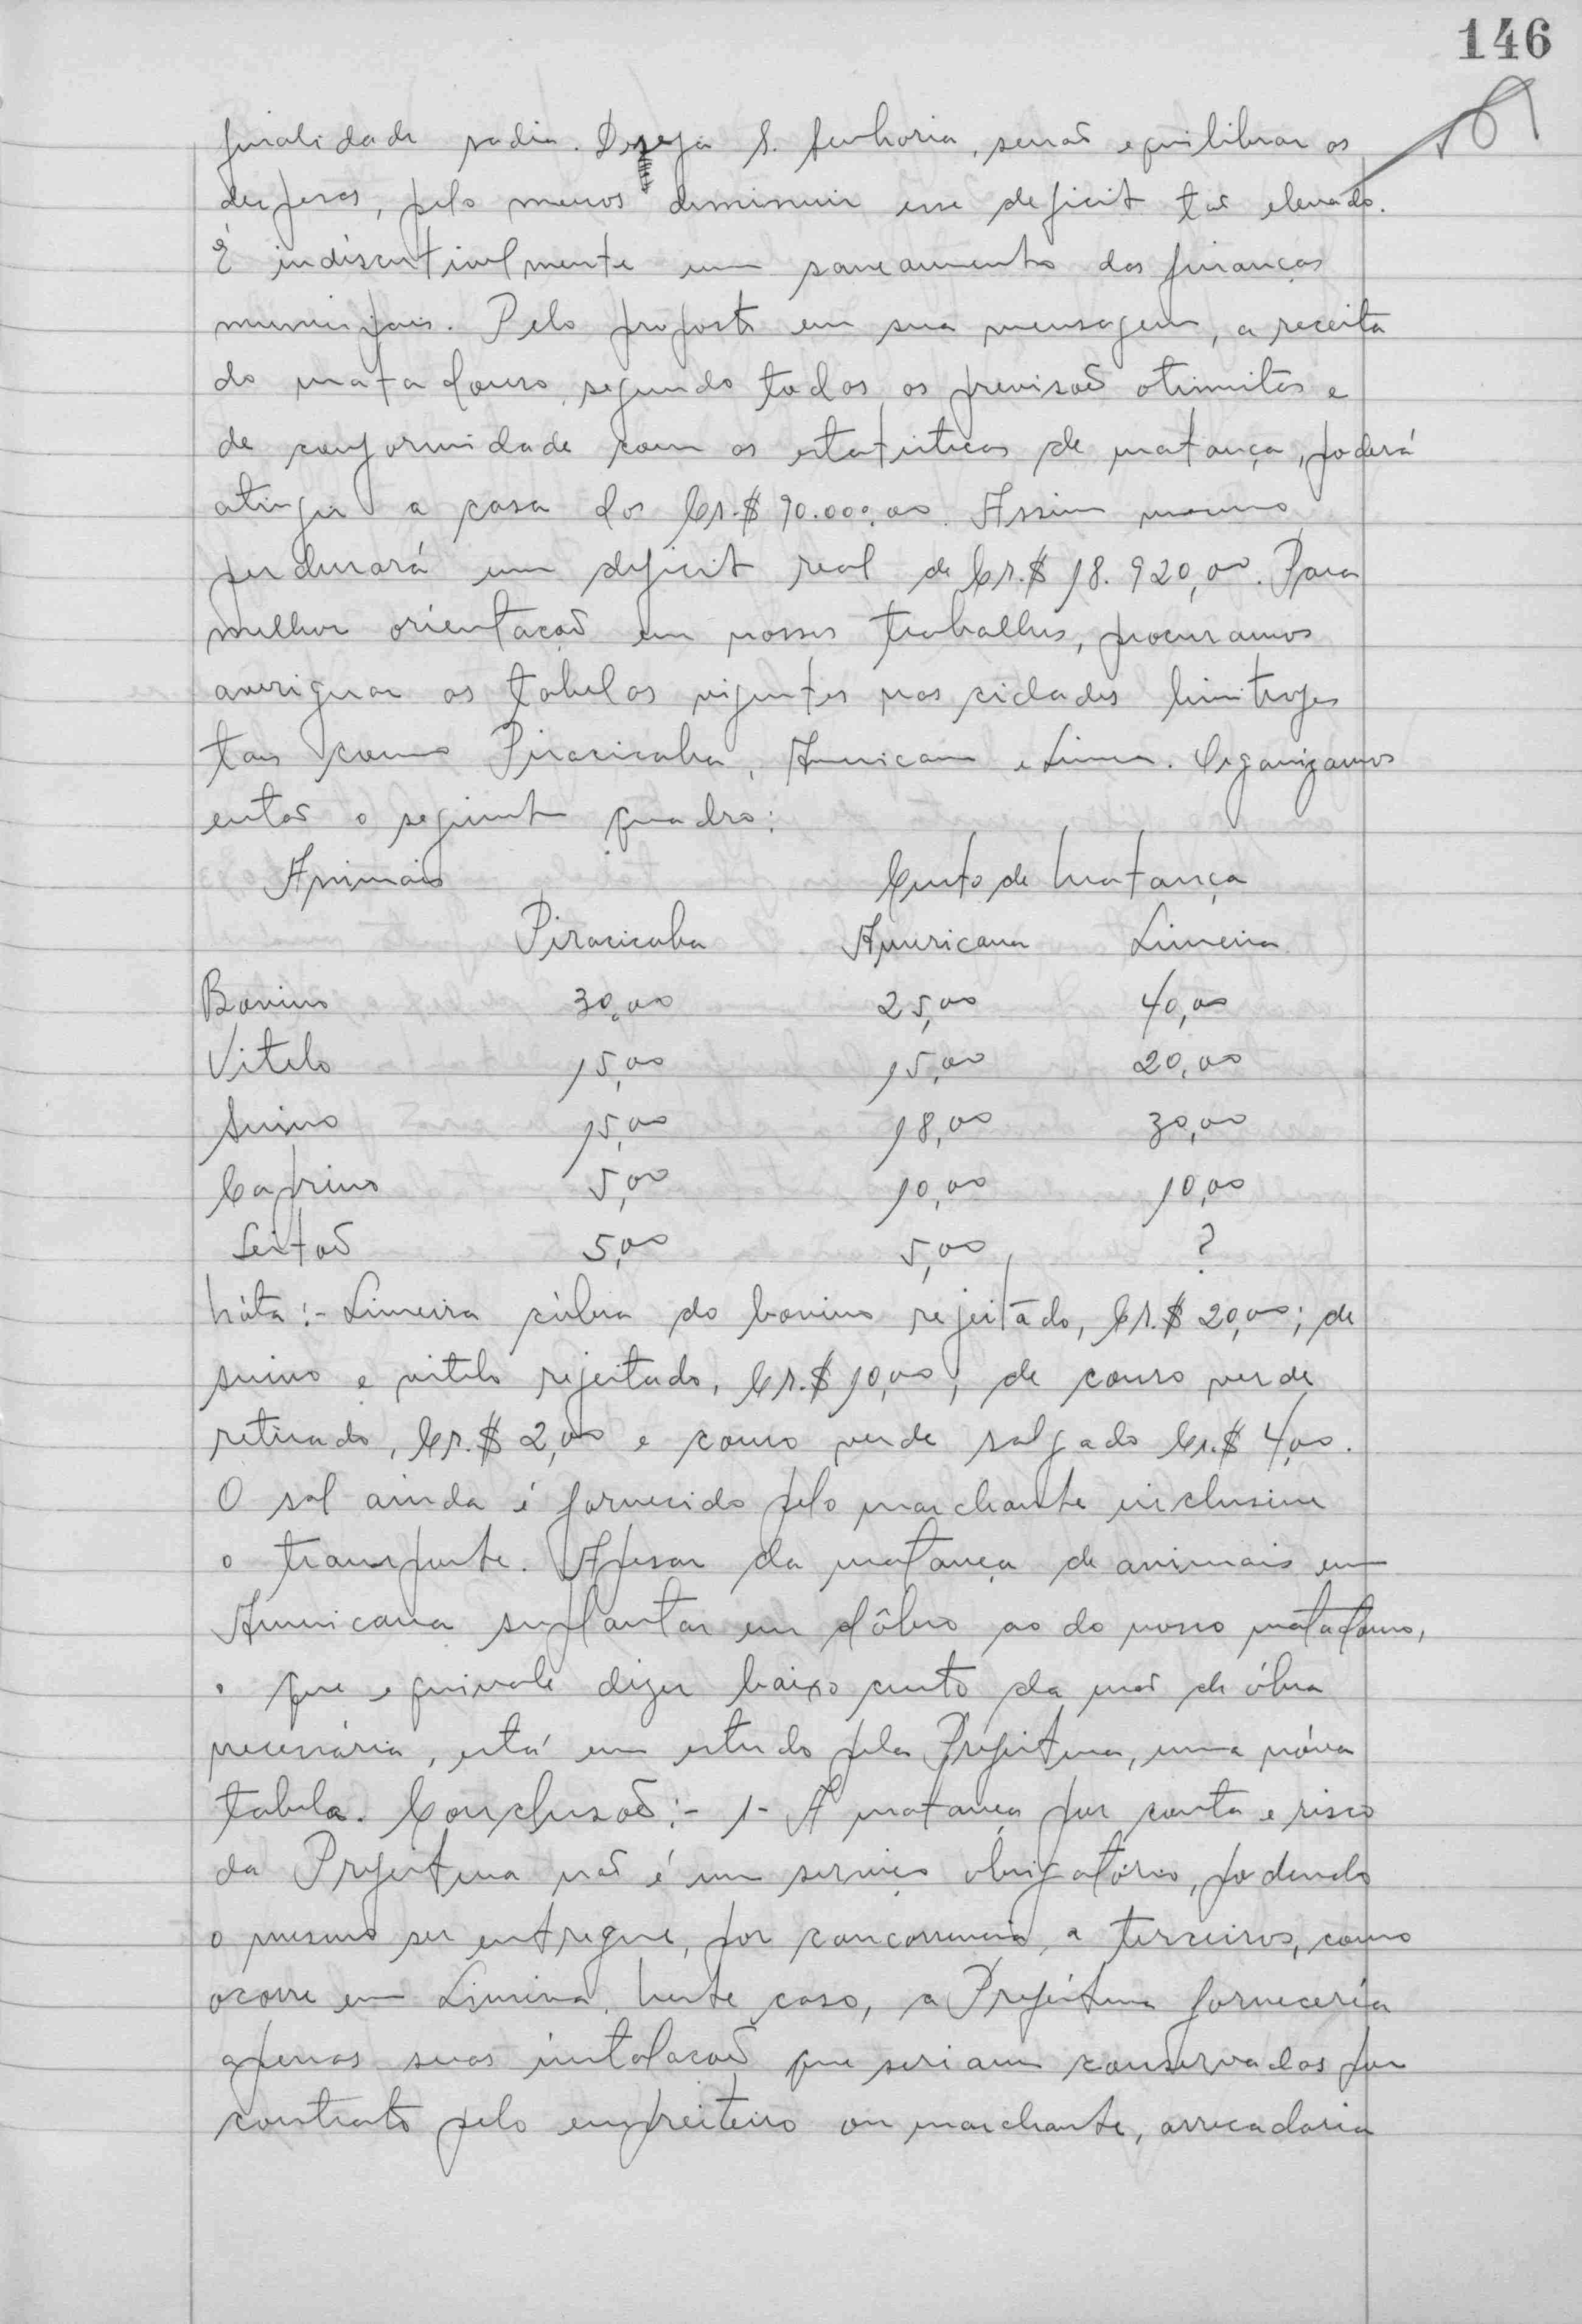 146
finalidade sadia. Deseja S. Senhoria, senão equilibrar as
despesas, pelo menos diminuir esse deficit tão elevado.
É indiscutivelmente um saneamento das finanças
municipais. Pelo proposto em sua mensagem, a receita
do matadouro, segundo todas as previsoẽs otimistas e
de conformidade com as estatisticas de matança, poderá
atingir a casa dos Cr.$ 90.000,00. Assim mesmo
perdurará um deficit real de Cr.$ 18.920,00. Para
melhor orientação em nossos trabalhos, procuramos
averiguar as tabelas vigentes nas cidades limitrofes
tais como Piracicaba, Americana e Limeira. Organizamos
então o seguinte quadro:
Animais Custo de Matança
Piracicaba Americana Limeira
Bovino 30,00 25,00 40,00
Vitelo 15,00 15,00 20,00
Suino 15,00 18,00 30,00
Caprino 5,00 10,00 10,00
Leitão 5,00 5,00 ?
Nóta:- Limeira cóbra do bovino rejeitado, Cr.$ 20,00; de
suino e vitelo rejeitado, Cr.$ 10,00; de couro verde
retirado, Cr.$ 2,00 e couro verde salgado Cr.$ 4,00.
O sal ainda é fornecido pelo marchante inclusive
o transporte. Apesar da matança de animais em
Americana suplantar em dôbro ao do nosso matadouro,
o que equivale dizer baixo custo da mão de óbra
necessária, está em estudo pela Prefeitura, uma nóva
tabela. Conclusão:- 1- A matança por conta e risco
da Prefeitura não é um serviço obrigatório, podendo
o mesmo ser entregue, por concorrencia, a terceiros, como
ocorre em Limeira. Neste caso, a Prefeitura forneceria
apenas suas instalaçoẽs que seriam conservadas por
contrato pelo empreiteiro ou marchante, arrecadaria